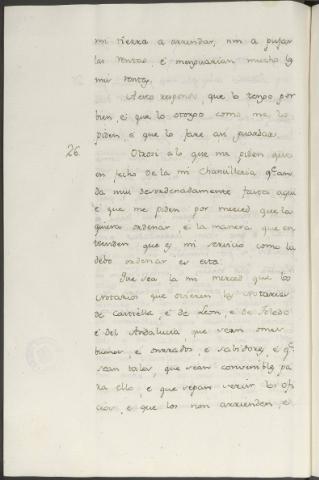 mi tierra a arrendar, nin a pujar
las rentas, é menguarian mucho las
mis rentas.
A esto respondo, que lo tengo por
bien, é que lo otorgo como me lo
piden, é que lo faré asi guardar.
26. Otrosi a lo que me piden que
en fecho de la mi Chancilleria q.e an-
da mui desordenadamente fasta aqui
é que me piden por merced que la
quiera ordenar, é la manera que en-
tienden que es mi servicio como la
debo ordenar es esta.
Que sea la mi merced que los
Notarios que ovieren las notarias
de Castiella, é de Leon, é de Toledo
é del Andalucia, que sean omes
buenos, é onrrados, é sabidores, é q.e
sean tales que sean convenibles pa-
ra ello, é que sepan servir los ofi-
cios, é que los non arrienden, é